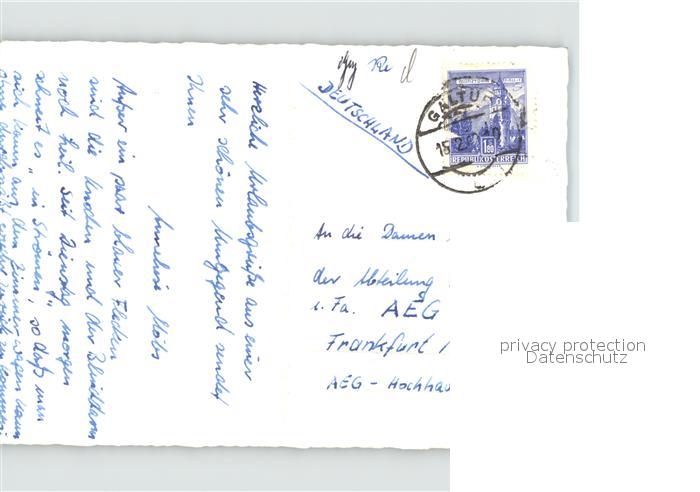 Herzliche Urlaubsgrüße aus einer
sehr schönen Umgegend sendet
Ihnen
Annelise
Außer ein paar blauer Flecken
sind die Knochen und der Blinddarm
noch heil. Seit Dienstag morgen
schneit es "in Strömen", so daß man
sich kaum aus dem Zimmer wagen kann
DEUTSCHLAND
GALTÜR
15.2.
1.80
REPUBLIK ÖSTERREICH
An die Damen
der Abteilung
i. Fa. AEG
Frankfurt
AEG - Hochhau
privacy protection
Datenschutz